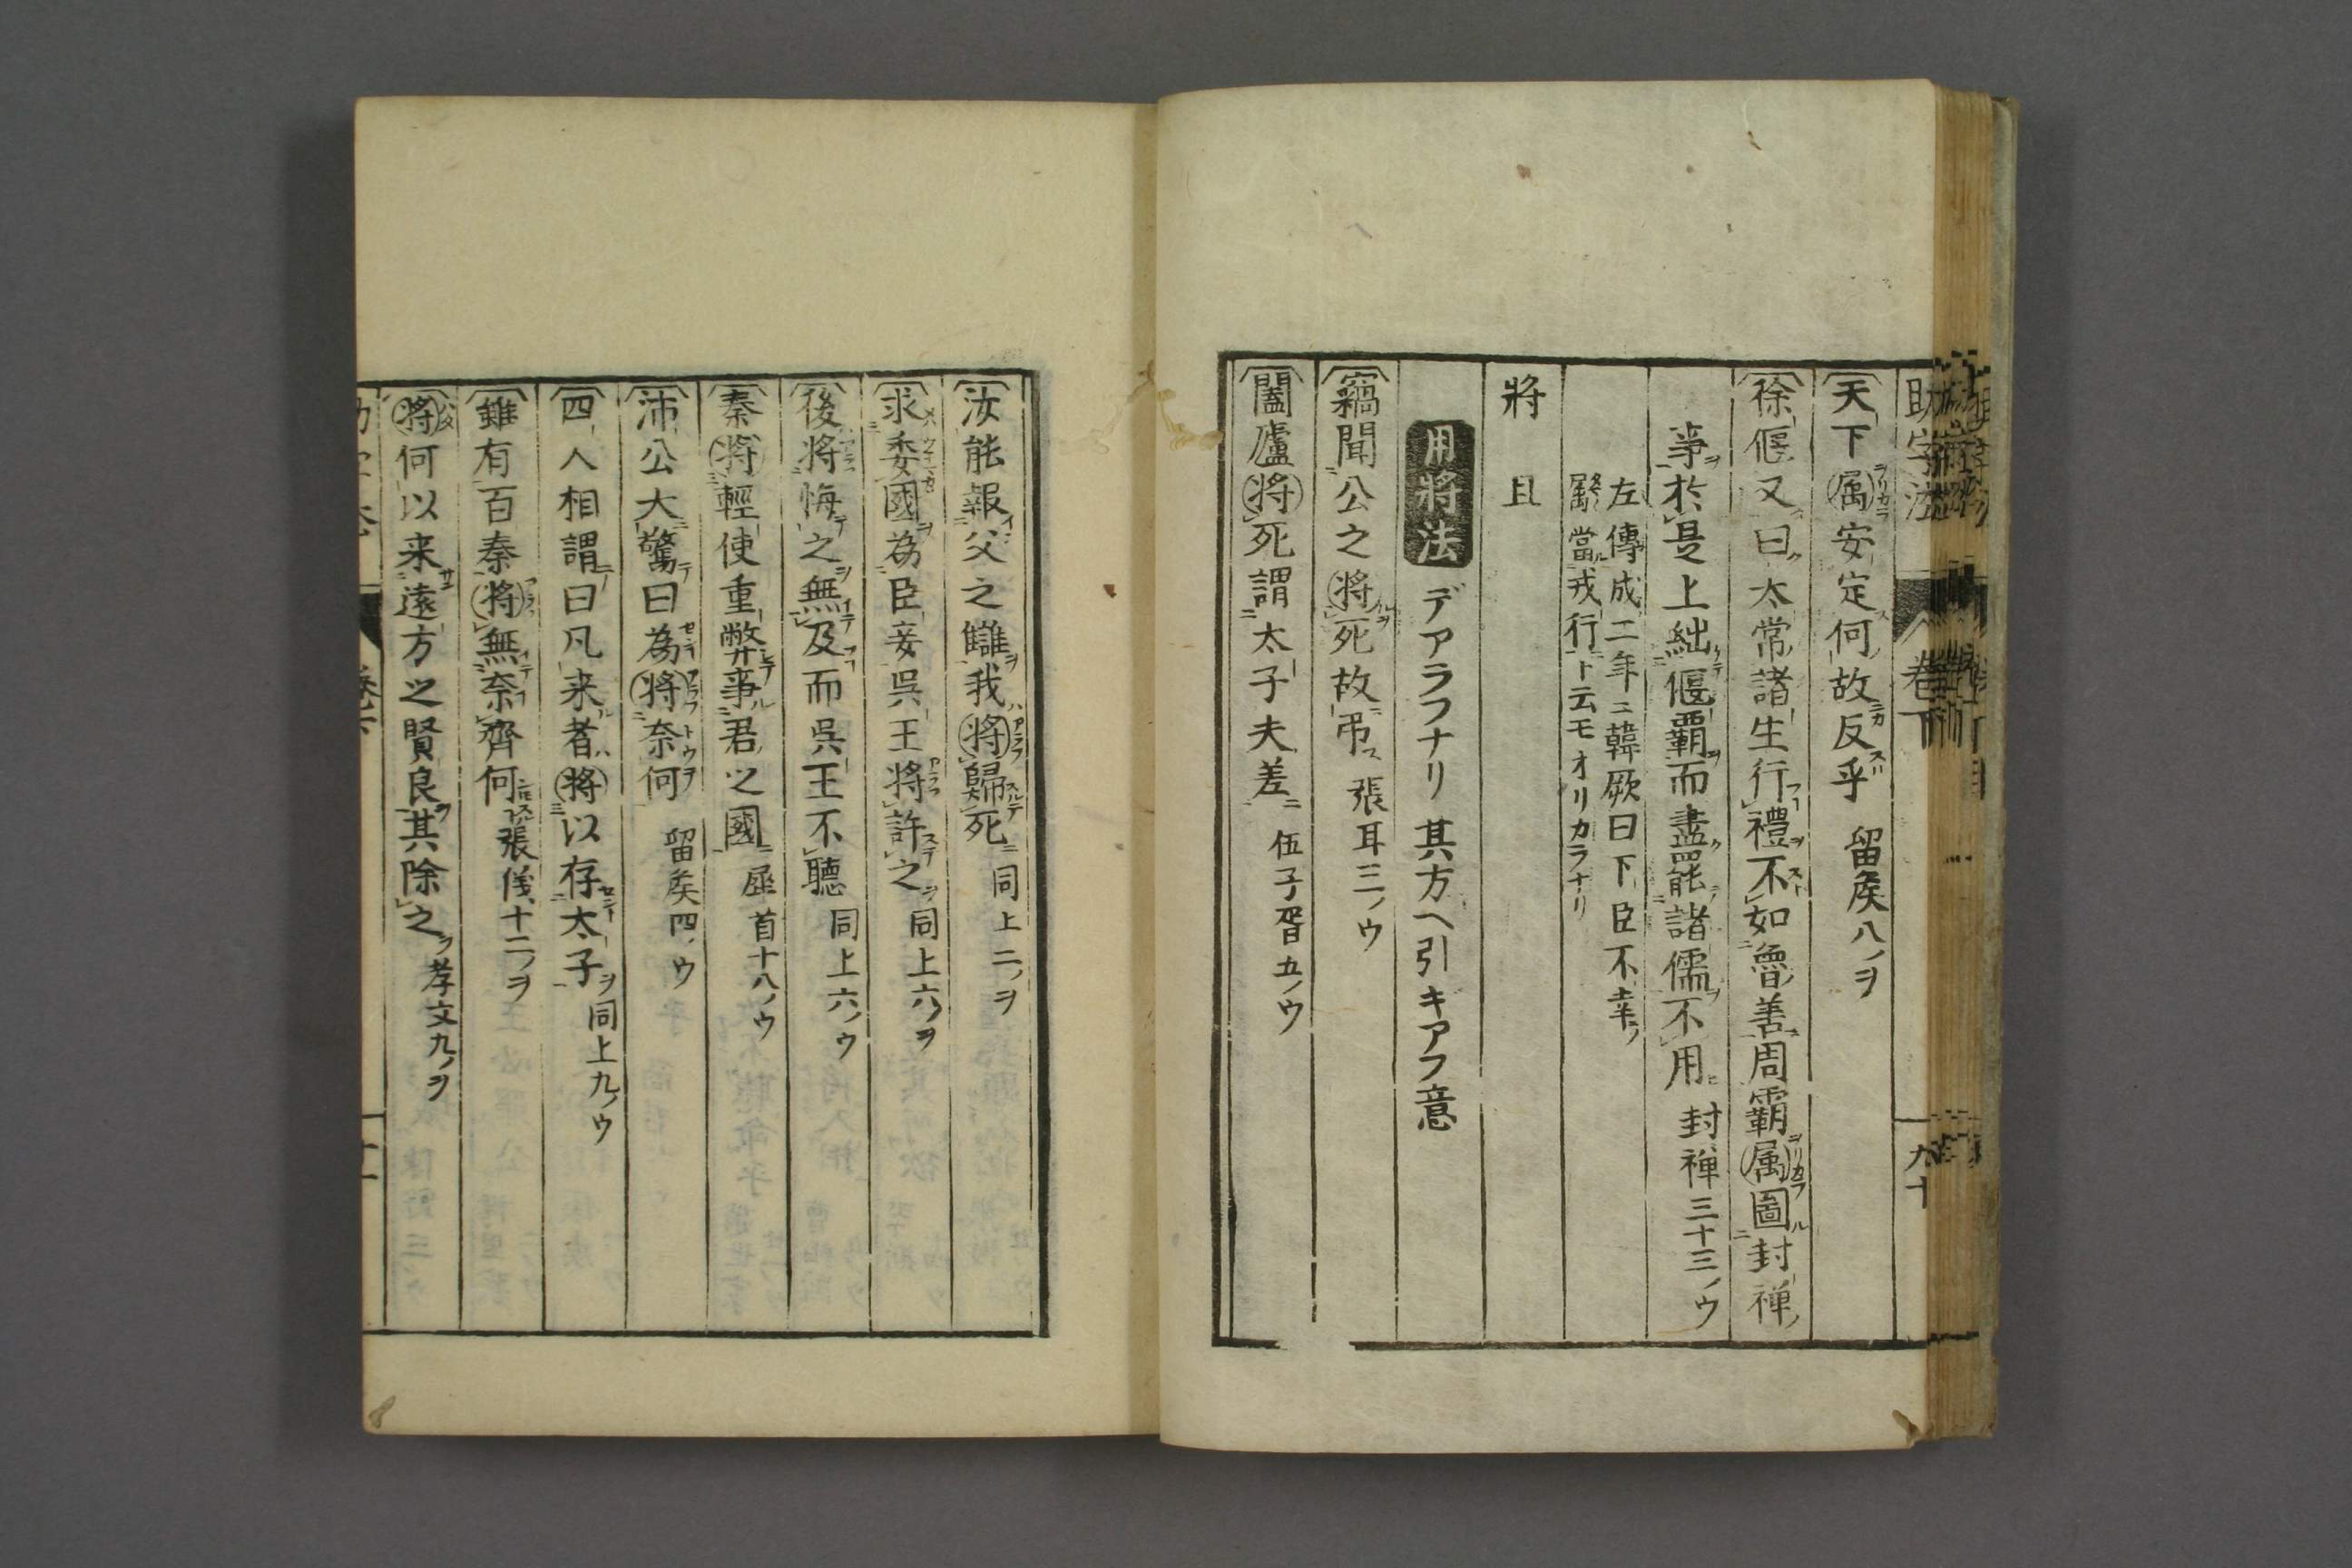 助字法 卷下 九十
天下属安定何故反乎 留矦八ノヲ
徐偃又曰太常諸生行禮不如魯善周霸属圖封禅
事於是上絀偃霸而盡罷諸儒不用 封禅三十三ノウ
左傳成二年ニ韓厥曰下臣不幸
屬當戎行ト云モオリカラナリ
將 且
用將法 デアラフナリ 其方ヘ引キアフ意
竊聞公之将死故弔 張耳三ノウ
闔廬将死謂太子夫差 伍子胥五ノウ
汝能報父之讎我将歸死 同上二ノヲ
求委國為臣妾呉王将許之 同上六ノヲ
後将悔之無及而呉王不聽 同上六ノウ
秦将輕使重幣事君之國 犀首十八ノウ
沛公大驚曰為将奈何 留矦四ノウ
四人相謂曰凡来者将以存太子 同上九ノウ
雖有百秦将無奈齊何 張儀十二ノヲ
将何以来遠方之賢良其除之 孝文九ノヲ